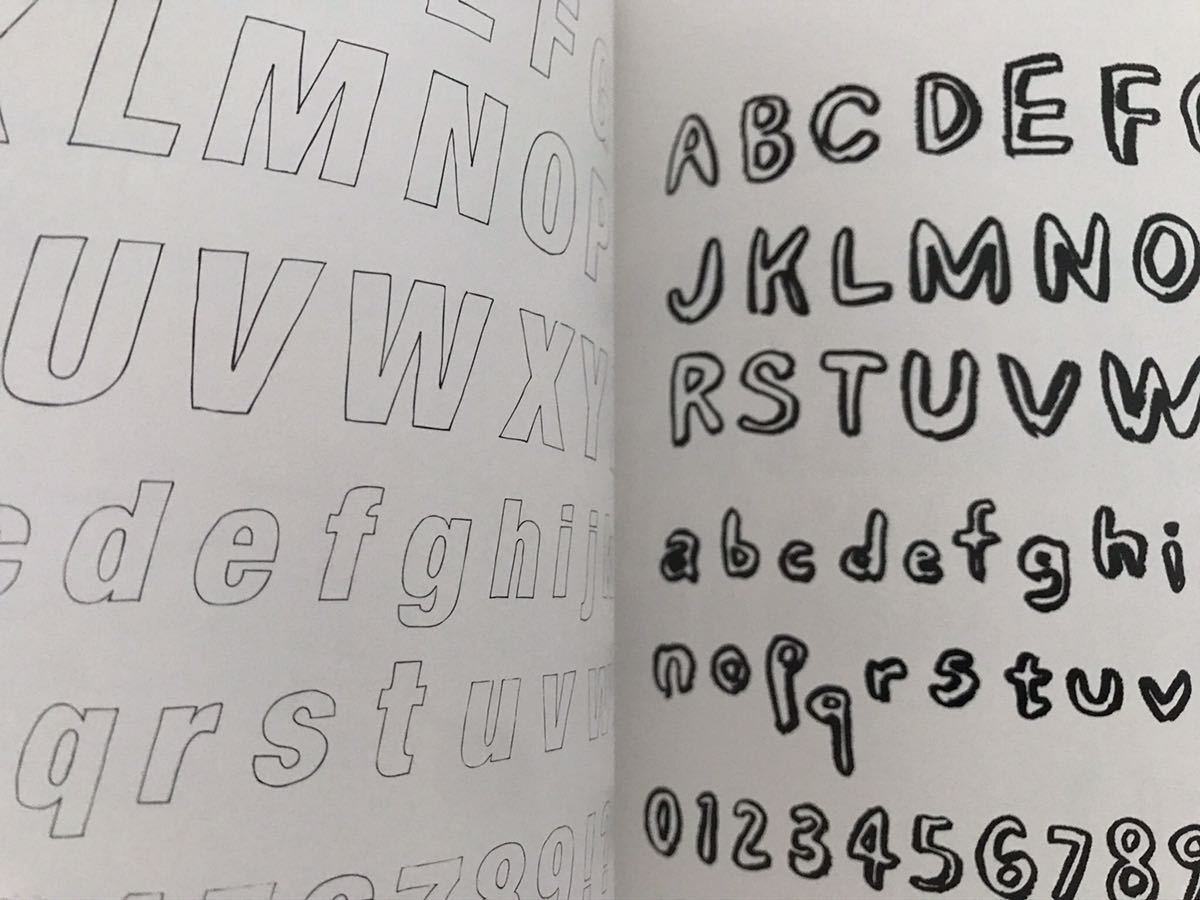 F G
K L M N O P
U V W X Y
c d e f g h i j
q r s t u v w
7 8 9 ! ?
A B C D E F
J K L M N O
R S T U V W
a b c d e f g h i
n o p q r s t u v
0 1 2 3 4 5 6 7 8 9